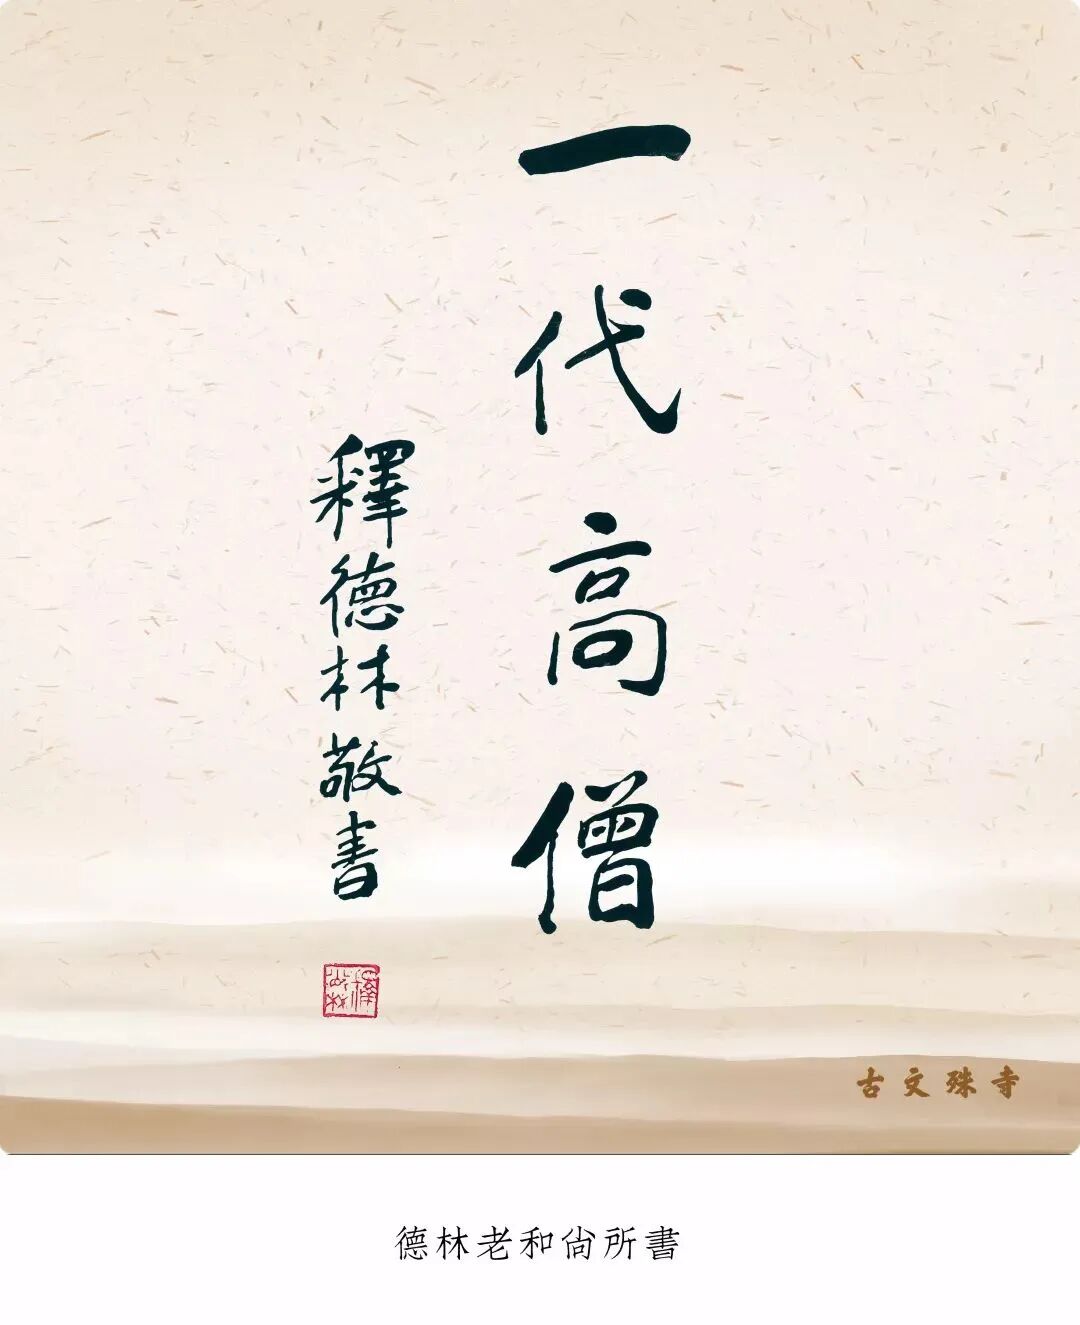 一代高僧
釋德林敬書
古文殊寺
德林老和尚所書